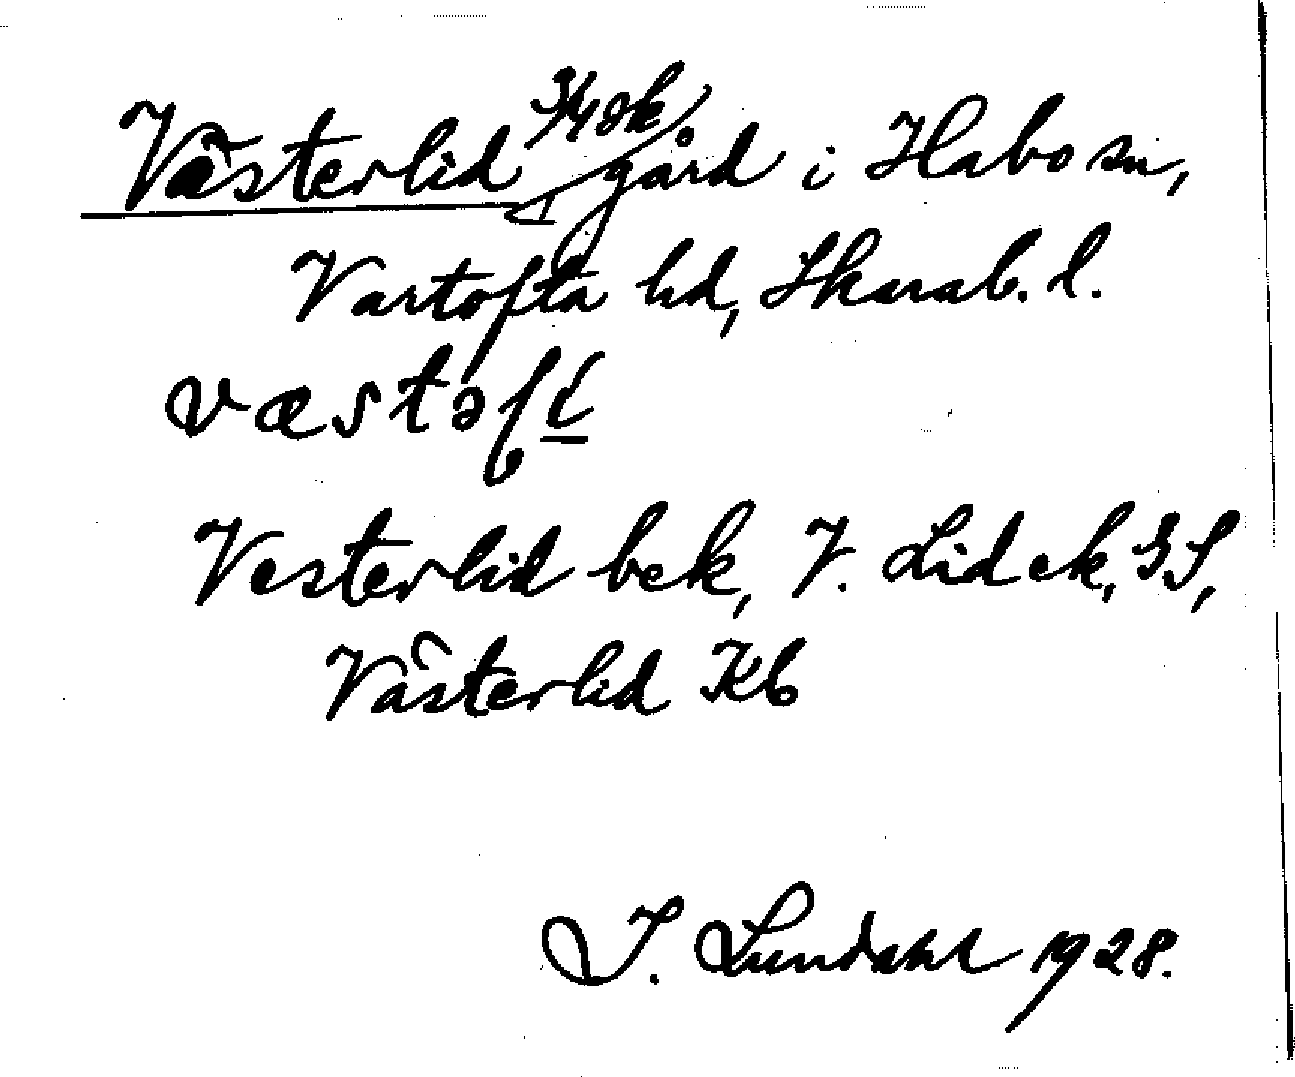 Västerlid 3/4 sk. gård i Habo sn,
Vartofta hd, Skarab. l.
væstəɼ
Vesterlid bek, V. Lid ek, GS,
Västerlid Kb
I. Lundahl 1928.